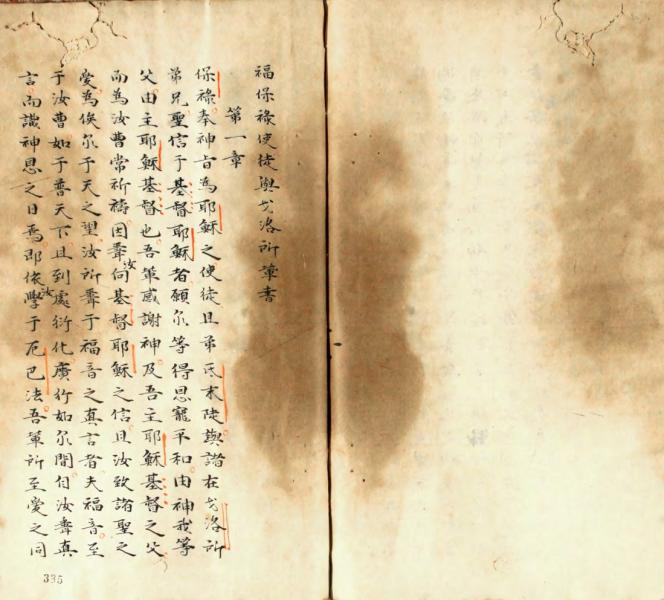 福保祿使徒與戈洛所輩書
第一章
保祿奉神旨為耶穌之使徒且弟氐末陡與諧在戈洛所
弟兄聖信于基督耶穌者願尔等得恩寵平和由神我等
父由主耶穌基督也吾輩感謝神及吾主耶穌基督之父
而為汝曹常祈禱因聞汝向基督耶穌之信且汝致諸聖之
愛為俟尔于天之望汝所聞于福音之真言者夫福音至
于汝曹如于普天下且到處衍化廣行如尔間自汝聞真
言而識神恩之日焉即依汝學于厄巴法吾輩所至愛之同
335